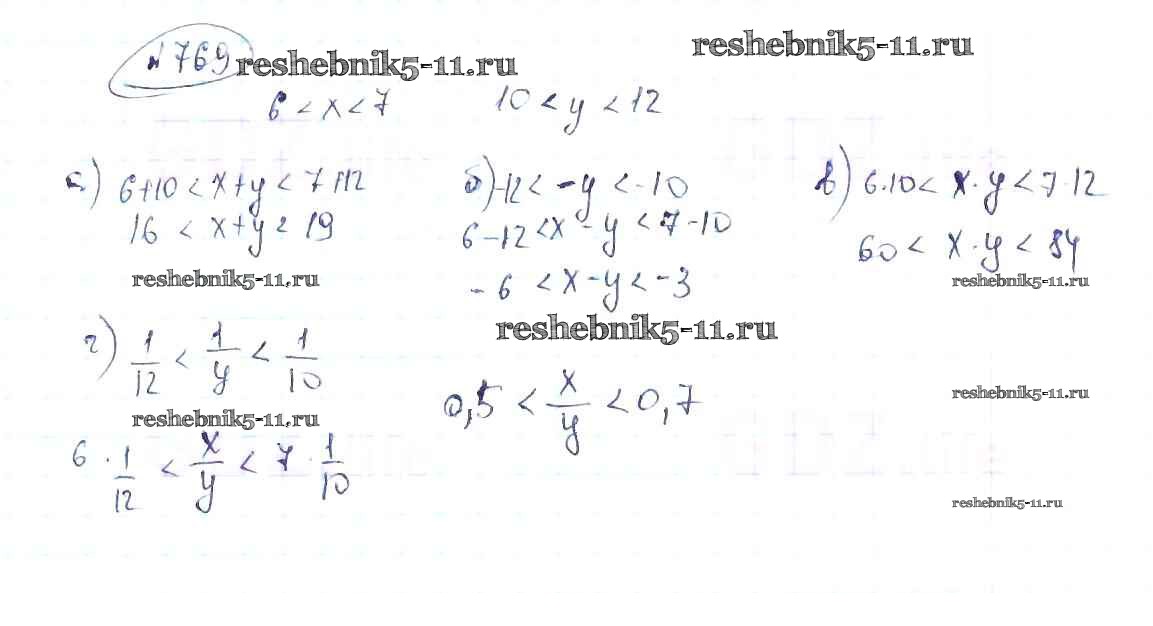 № 769 reshebnik5-11.ru reshebnik5-11.ru
6 < x < 7 10 < y < 12
а) 6+10 < x+y < 7+12
16 < x+y < 19
reshebnik5-11.ru
б) -12 < -y < -10
6-12 < x - y < 7-10
-6 < x-y < -3
reshebnik5-11.ru
в) 6·10 < x·y < 7·12
60 < x·y < 84
reshebnik5-11.ru
г) 1/12 < 1/y < 1/10
reshebnik5-11.ru
6 · 1/12 < x/y < 7 · 1/10
0,5 < x/y < 0,7
reshebnik5-11.ru
reshebnik5-11.ru